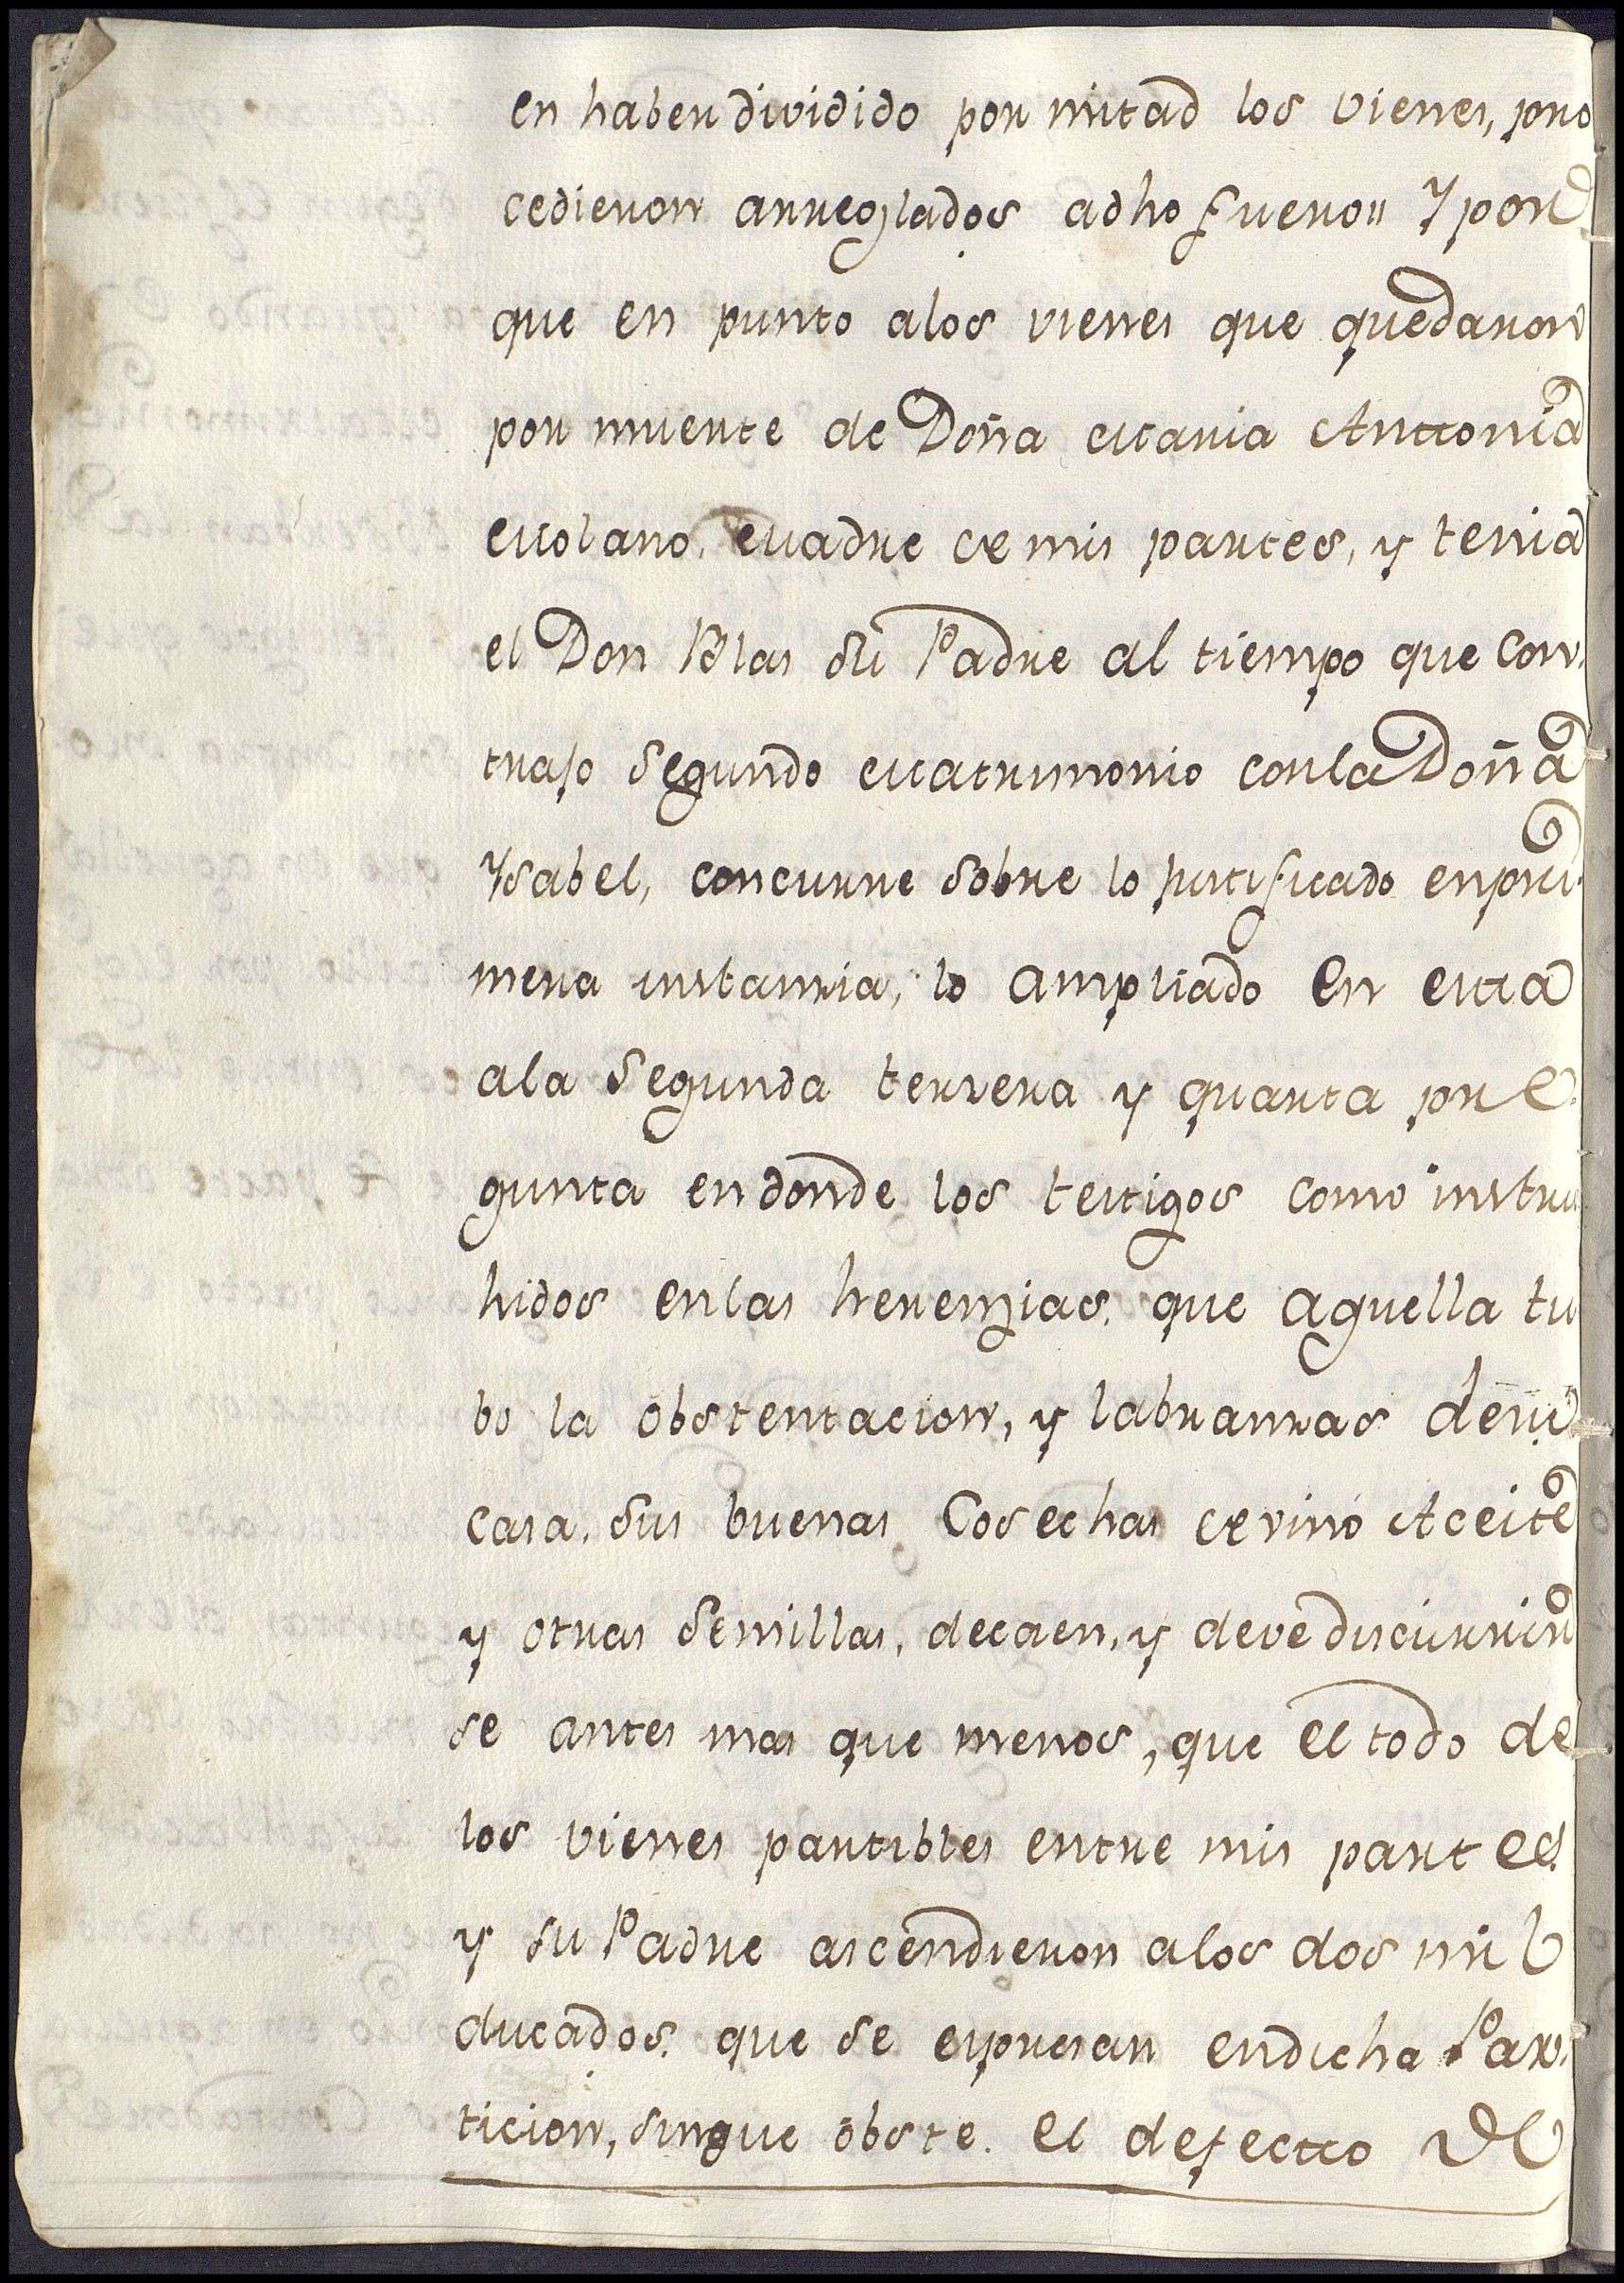 en haber dividido por mitad los vienes, pro
cedieron arreglados adho fuero,, Y por
que en punto alos vienes que quedaron
por muerte de Doña Maria Anttonia
Molano, Madre de mis partes, y tenia
el Don Blas su Padre al tiempo que con
trajo segundo Matrimonio conla Doña
Ysabel, concurre sobre lo justificado enpri
mera instanzia, lo ampliado en esta
ala segunda terzera y quarta pre
gunta endonde los testigos como instru
hidos enlas herenzias que aquella tu
bo la obstentacion, y labranzas desu
casa, sus buenas Cosechas de vino Aceite
y otras semillas, decaen, y deve discurrir
se antes mas que menos, que el todo de
los vienes partibles entre mis partes
y su Padre ascendieron alos dos mil
ducados que se expresan endicha Par
ticion, sinque obste el defectto de